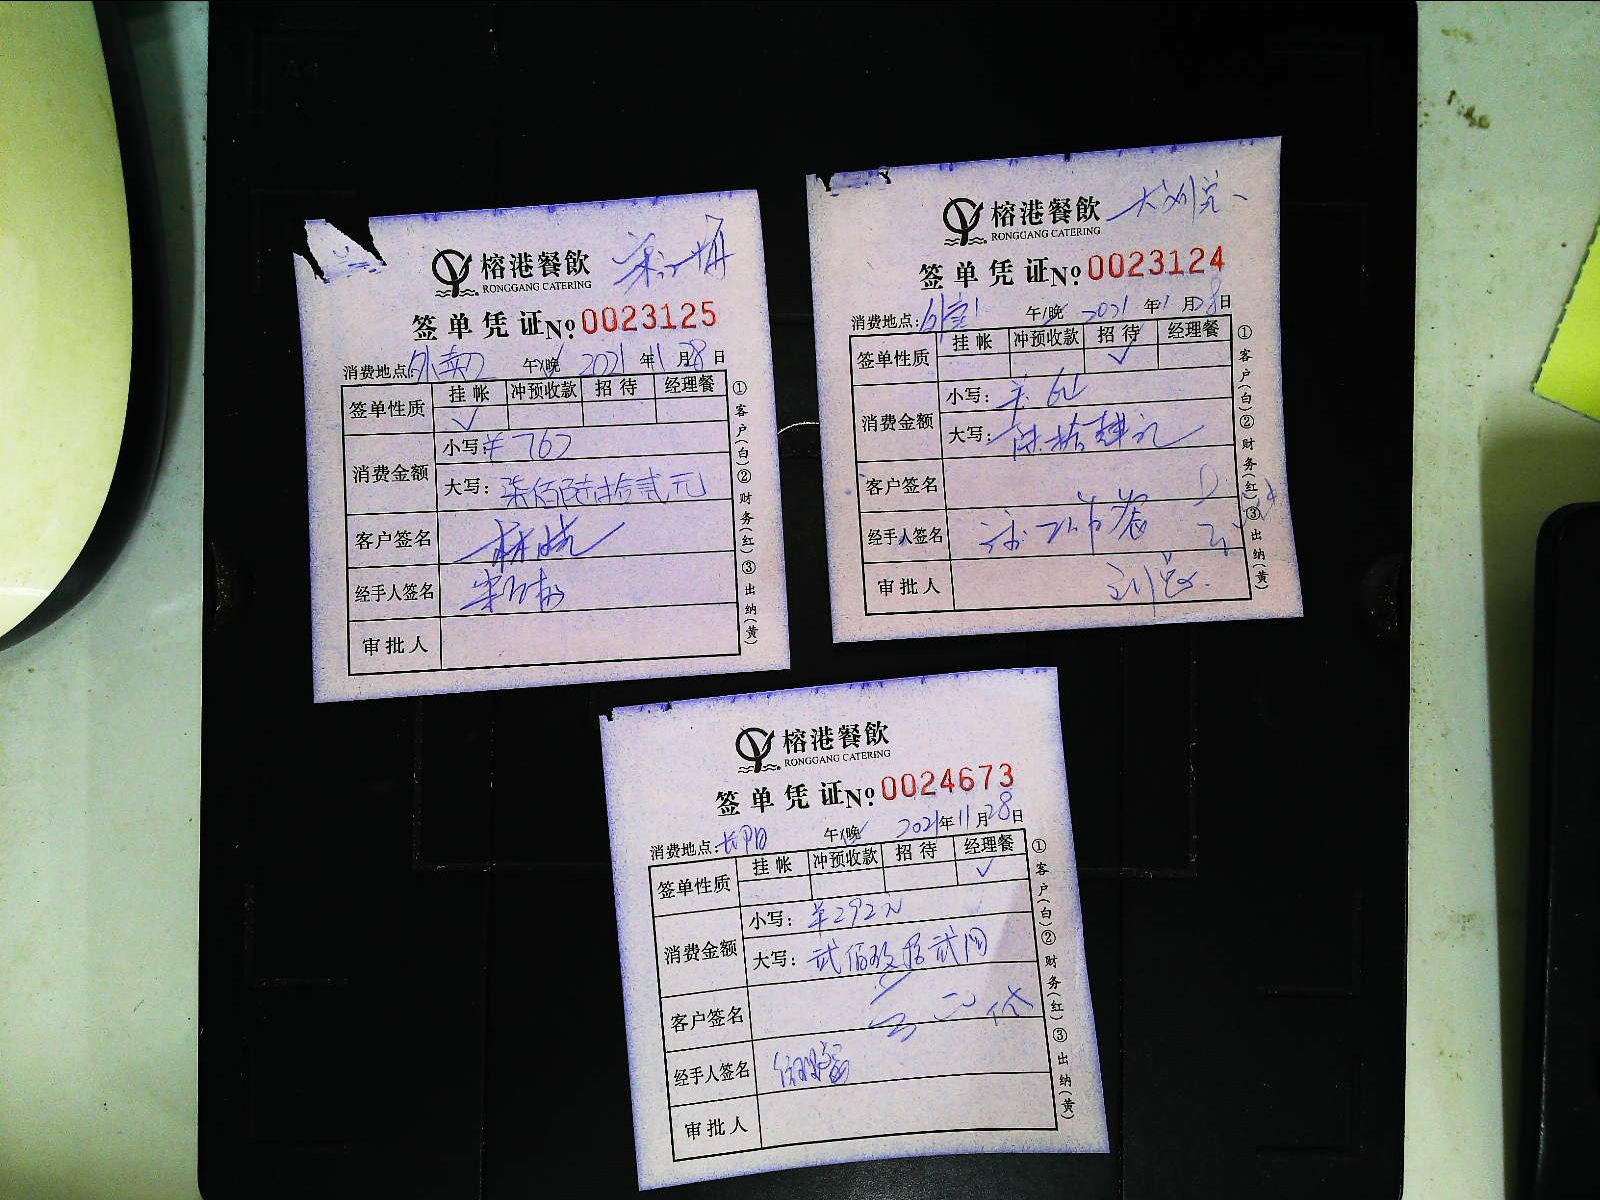 榕港餐飲
RONGGANG CATERING
签单凭证 No 0023125
消费地点: 外卖 午/晚 2021年11月28日
签单性质 挂帐 冲预收款 招待 经理餐
✓
消费金额
小写: ¥762
大写: 柒佰陆拾贰元
客户签名
经手人签名
审批人
①客户(白)②财务(红)③出纳(黄)
榕港餐飲
RONGGANG CATERING
签单凭证 No 0023124
消费地点: 午/晚 2021年11月28日
签单性质 挂帐 冲预收款 招待 经理餐
✓
消费金额
小写:
大写:
客户签名
经手人签名
审批人
①客户(白)②财务(红)③出纳(黄)
榕港餐飲
RONGGANG CATERING
签单凭证 No 0024673
消费地点: 长阳 午/晚 2021年11月28日
签单性质 挂帐 冲预收款 招待 经理餐
✓
消费金额
小写: ¥292元
大写: 贰佰玖拾贰圆
客户签名
经手人签名
审批人
①客户(白)②财务(红)③出纳(黄)